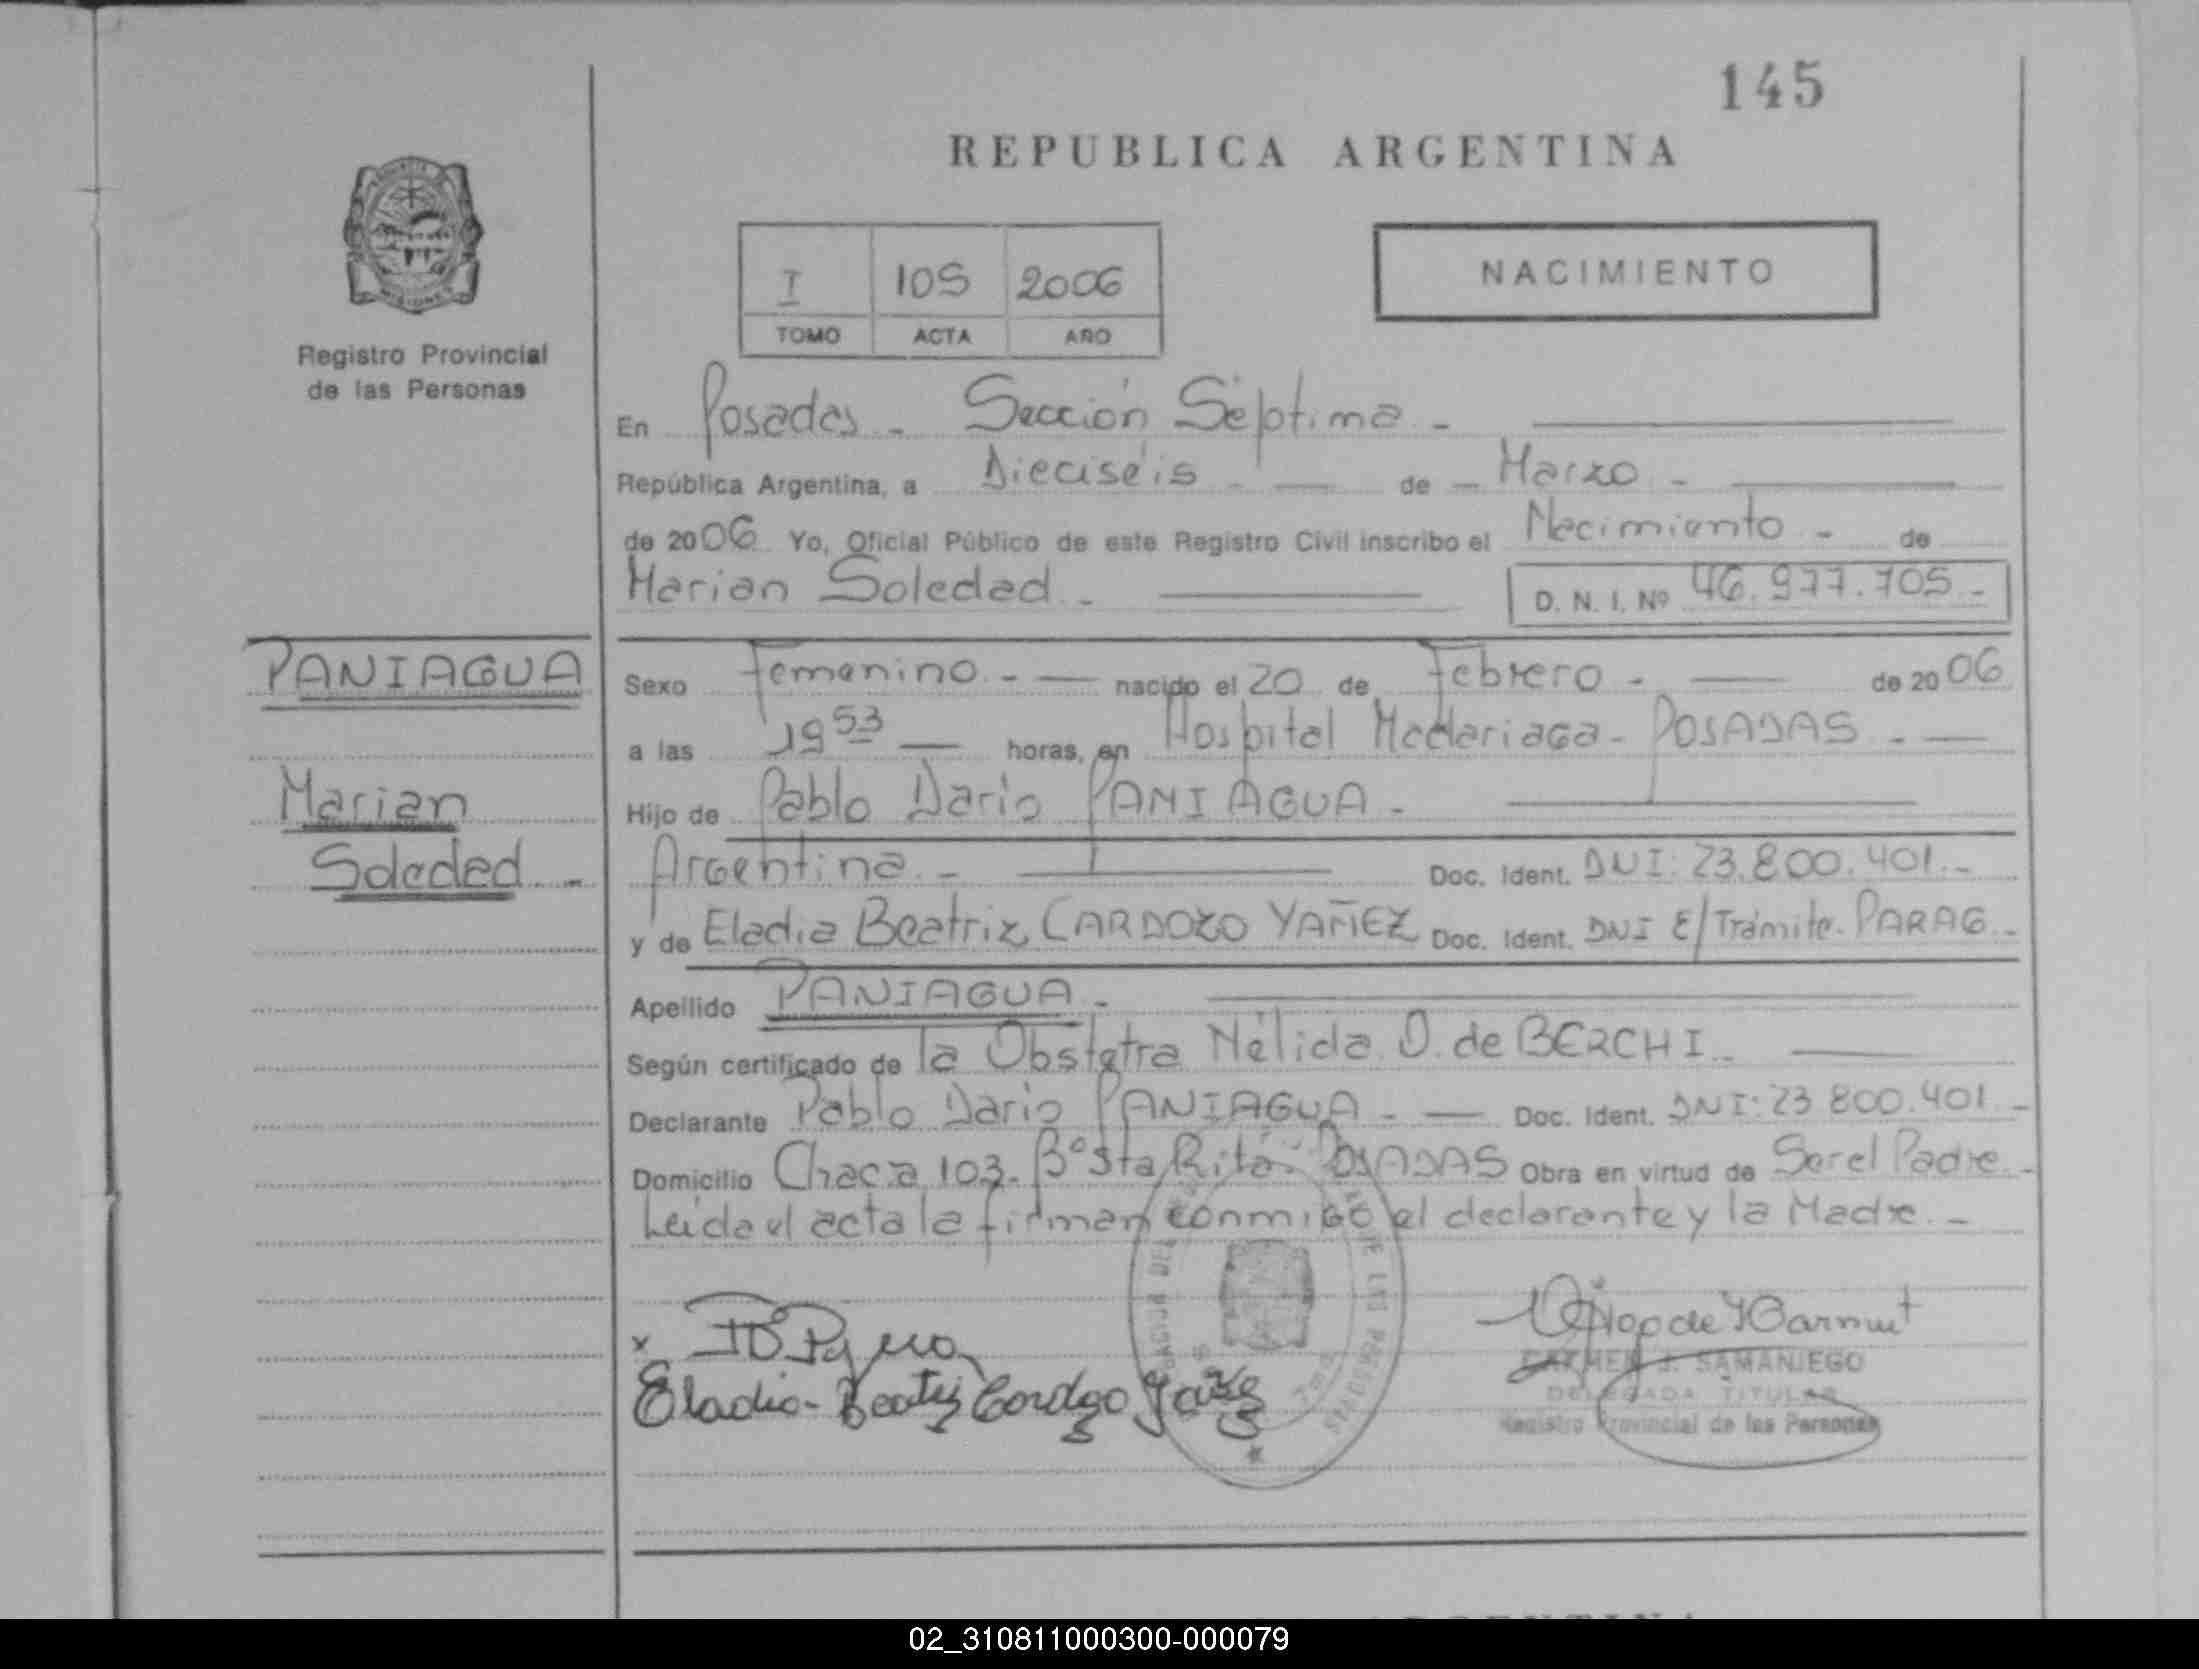 145
REPUBLICA ARGENTINA
I 105 2006
TOMO ACTA AÑO
NACIMIENTO
Registro Provincial
de las Personas
En Posadas - Sección Séptima -
República Argentina, a Dieciséis - de - Marzo -
de 2006 Yo, Oficial Público de este Registro Civil inscribo el Nacimiento - de
Marian Soledad - D. N. I. Nº 46.977.705 -
PANIAGUA
Marian
Soledad -
Sexo Femenino - nacido el 20 de Febrero - de 2006
a las 19 53 horas, en Hospital Madariaga - POSADAS -
Hijo de Pablo Dario PANIAGUA -
Argentina - Doc. Ident. DNI: 23.800.401 -
y de Eladia Beatriz CARDOZO YAÑEZ Doc. Ident. DNI E/Trámite - PARAG. -
Apellido PANIAGUA -
Según certificado de la Obstetra Nélida O. de BERCHI -
Declarante Pablo Dario PANIAGUA - Doc. Ident. DNI: 23 800.401 -
Domicilio Chaca 103 - Bº Sta Rita - POSADAS Obra en virtud de Ser el Padre -
Leida el acta la firman conmigo el declarante y la Madre -
x
Eladia - Beatriz Cordozo Yañez
CARMEN J. SAMANIEGO
DELEGADA TITULAR
Registro Provincial de las Personas
02_310811000300-000079